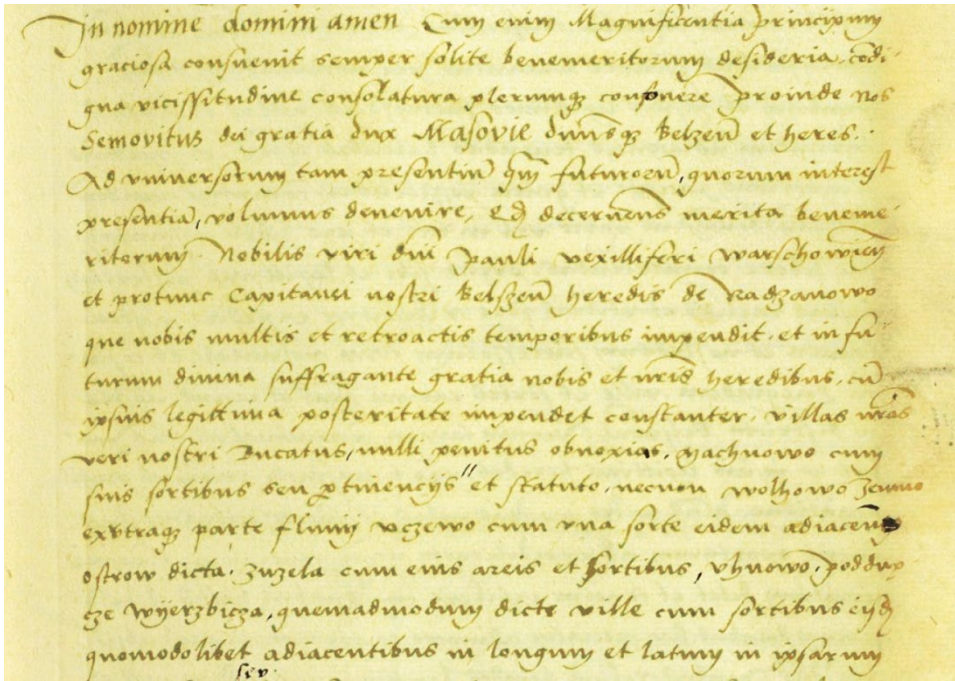 In nomine domini amen Cum enim Magnificentia principum
graciosa consuevit semper solite benemeritorum desideria, cōdi-
gna vicissitudine consolatura plerumqꝫ confovere Proinde nos
Semovitus dei gratia dux Masovie dūnsqꝫ Belzen̄ et heres.
Ad universorum tam presentiū qm̄ futurorū, quorum interest
presentiā, volumus devenire, qd̄ decernens merita beneme-
ritorum. Nobilis viri dn̄i Pauli vexilliferi warschowien̄
et protunc Capitanei nostri Belszen̄ heredis de Radzanowo
que nobis multis et retroactis temporibus impendit. et in fu-
turum divina suffragante gratia nobis et nr̄is heredibus. cū
ipsius legittima posteritate impendet constanter. villas nr̄as
veri nostri Ducatus, nulli penitus obnoxias, Machnowo cum
suis sortibus seu ꝑtinencijs et statuto. necnon wolhowo
exutraqꝫ parte fluvij vczewo cum una sorte eidem adiacen̄
ostrow dicta. Zuzela cum eius areis et sortibus, vhnowo, poddup-
cze Wyerzbicza, quemadmodum dicte ville cum sortibus eisd̄
quomodolibet adiacentibus in longum et latum in ipsarum
seu